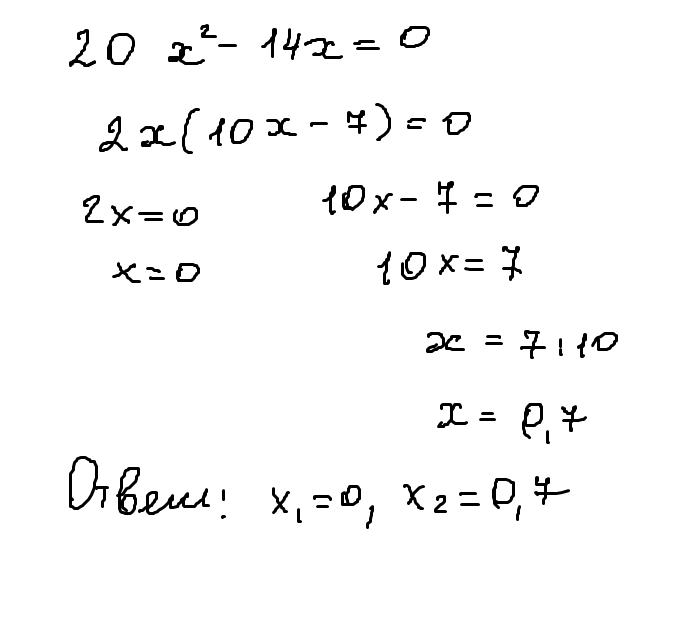 20 x² - 14x = 0
2x(10x - 7) = 0
2x = 0 10x - 7 = 0
x = 0 10x = 7
x = 7 : 10
x = 0,7
Ответ: x₁ = 0, x₂ = 0,7